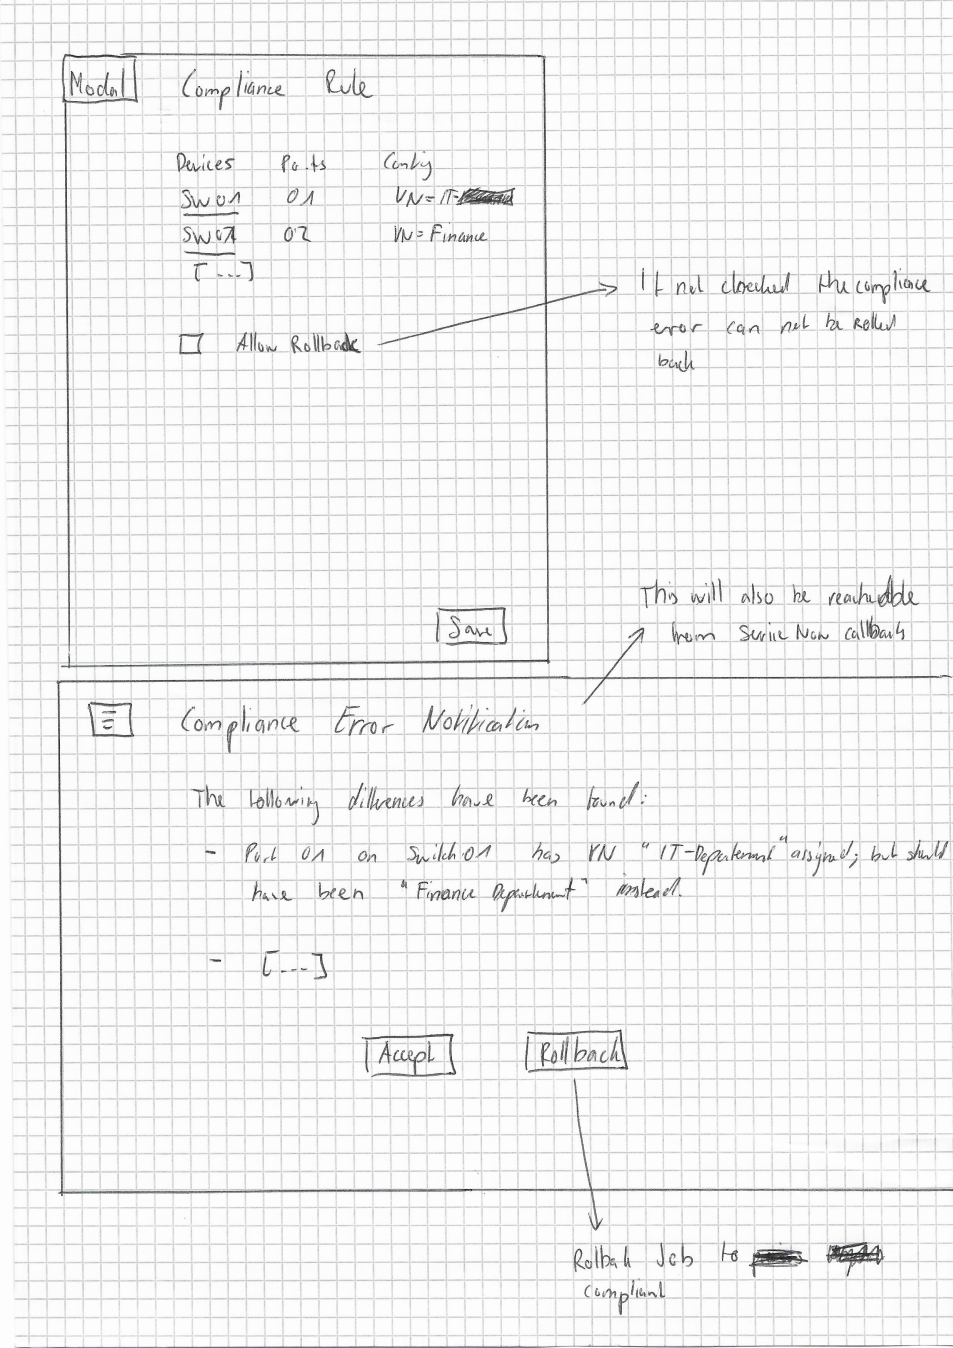 Modal
Compliance Rule
Devices Ports Config
SW01 01 VN=IT-
SW02 02 VN=Finance
[...]
Allow Rollback
If not checked the compliance
error can not be rolled
back
Save
This will also be reachable
from Service Now callback
Compliance Error Notification
The following differences have been found:
- Port 01 on Switch01 has VN "IT-Department" assigned, but should
have been "Finance Department" instead.
- [...]
Accept
Rollback
Rollback Job to
compliant